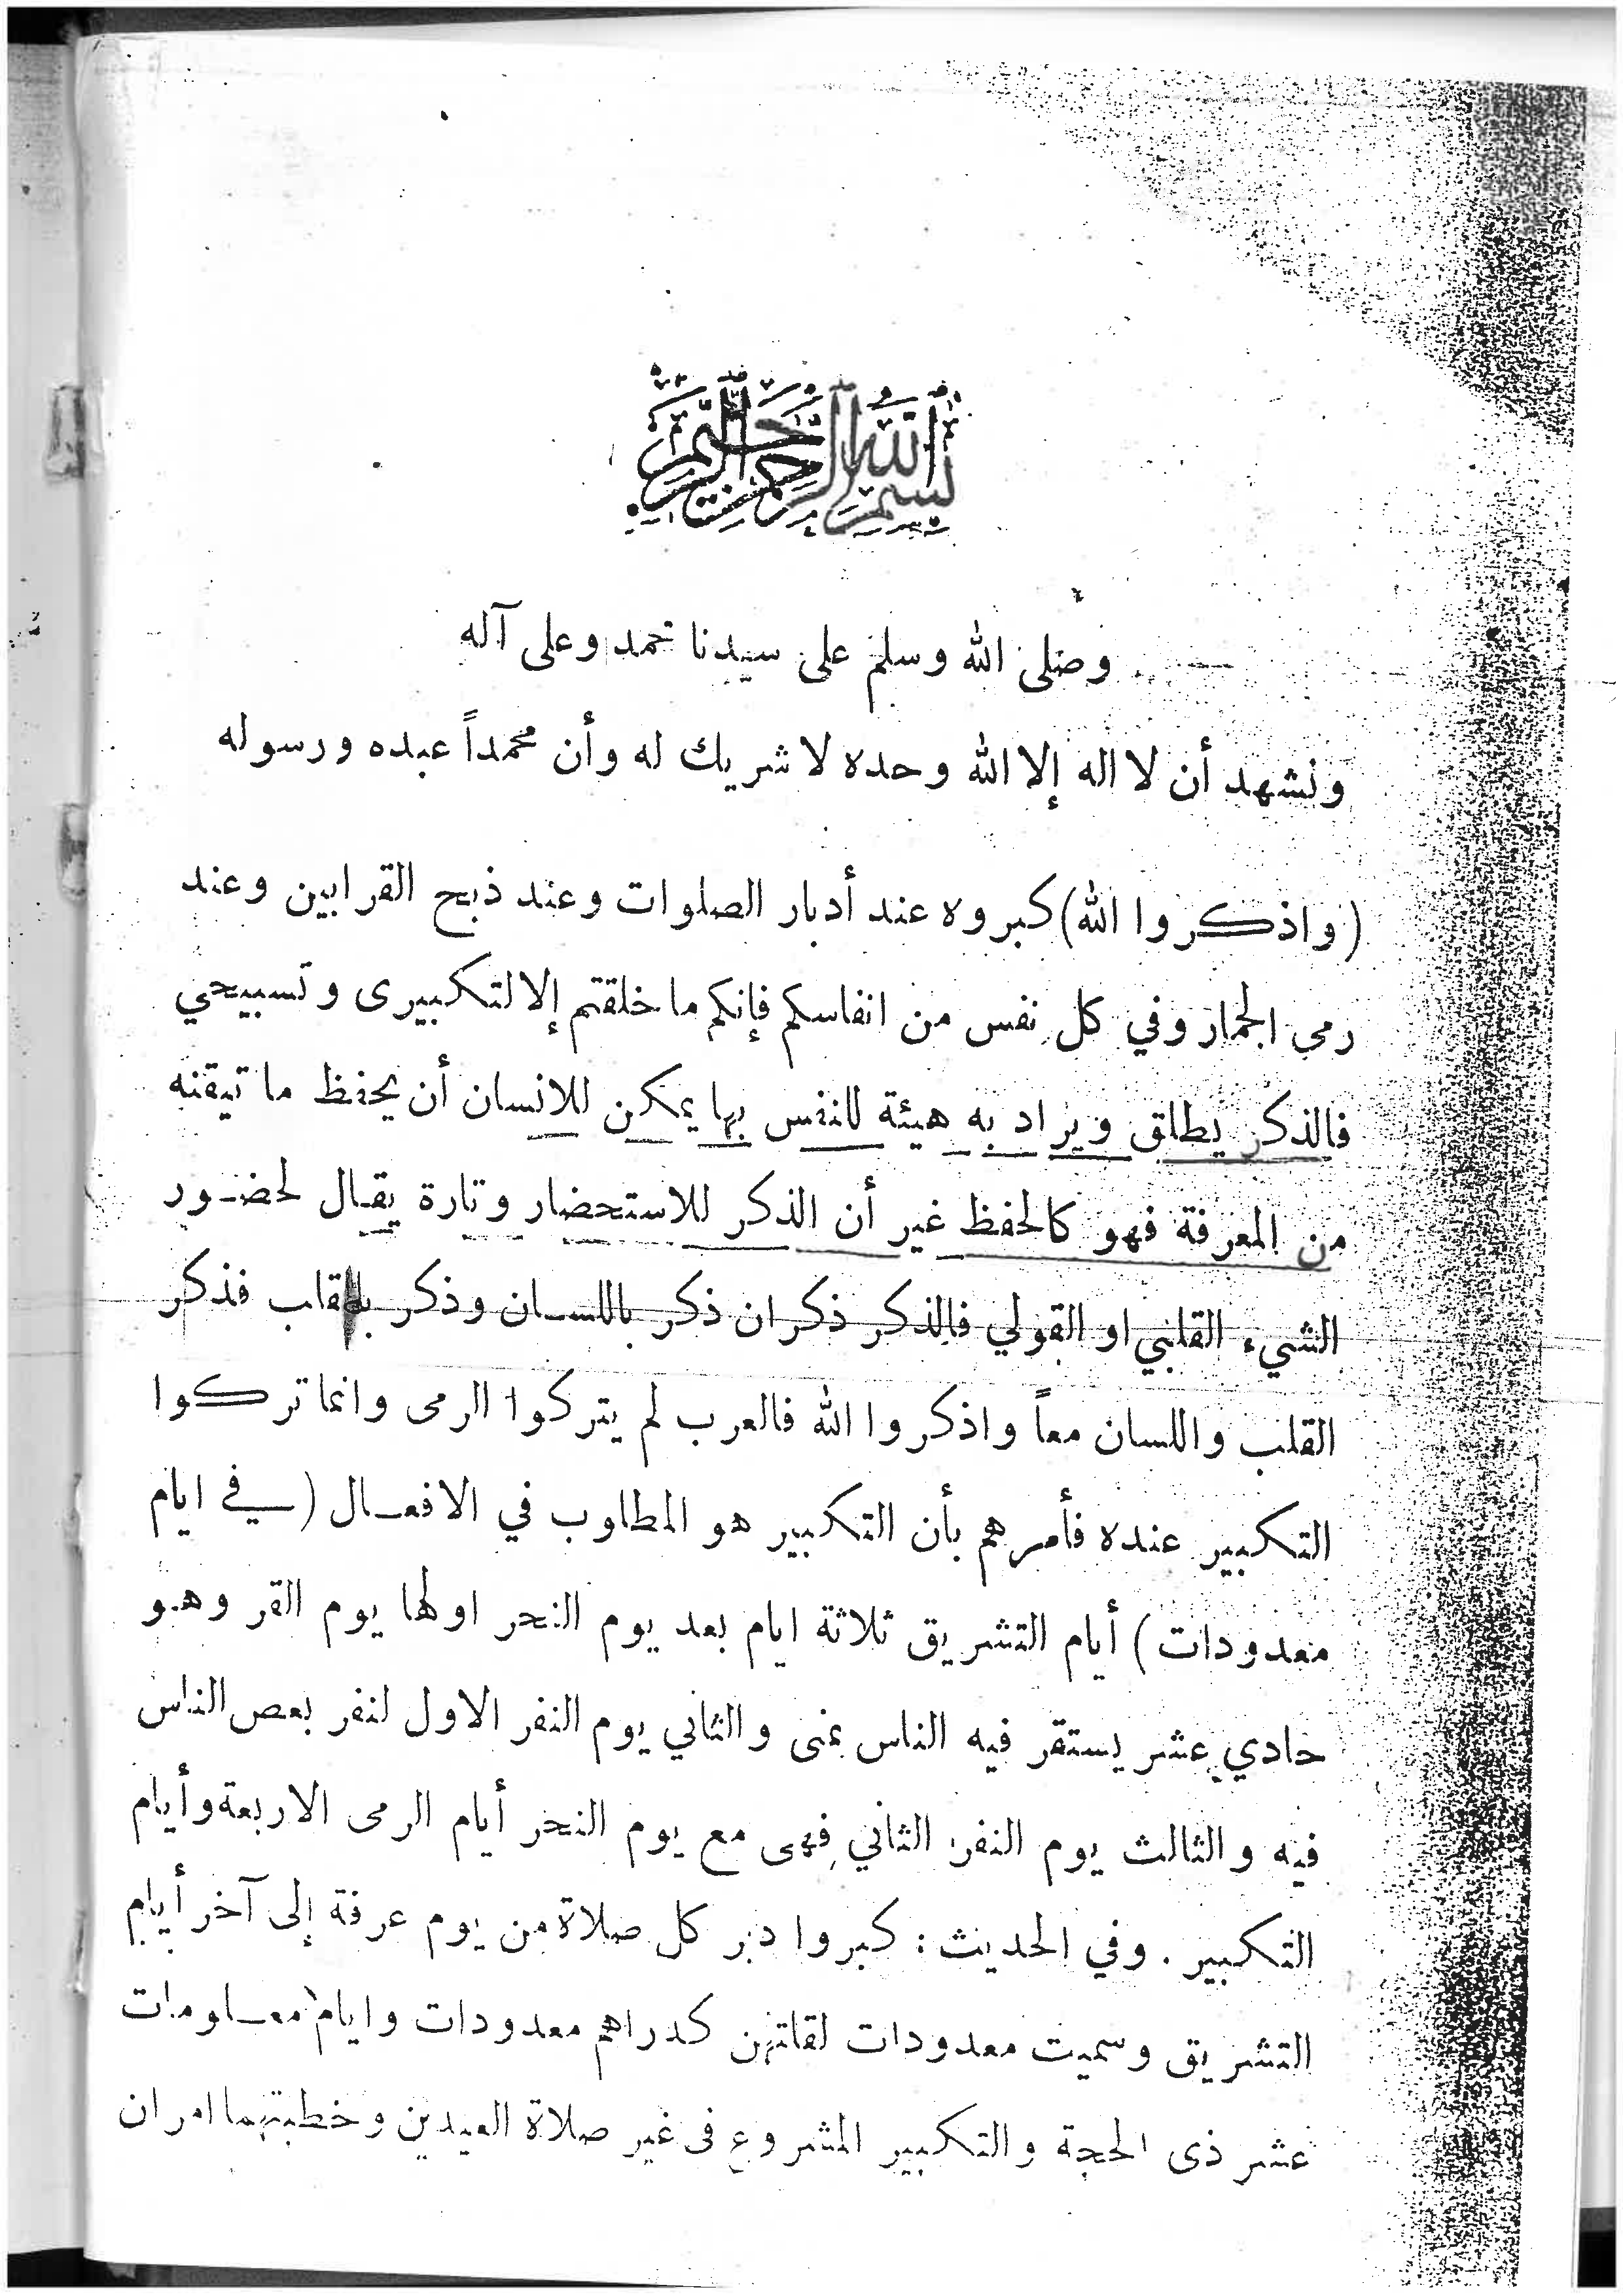 بسم الله الرحمن الرحيم
وصلى الله وسلم على سيدنا محمد وعلى آله
ونشهد أن لا اله إلا الله وحده لا شريك له وأن محمداً عبده ورسوله
(واذكروا الله) كبروه عند أدبار الصلوات وعند ذبح القرابين وعند
رمى الجمار وفي كل نفس من انفاسكم فإنكم ما خلقتم إلا لتكبيرى وتسبيحي
فالذكر يطلق ويراد به هيئة للنفس بها يمكن للانسان أن يحفظ ما تيقنه
من المعرفة فهو كالحفظ غير أن الذكر للاستحضار وتارة يقال لحضور
الشيء القلبي او القولي فالذكر ذكران ذكر باللسان وذكر بالقلب فذكر
القلب واللسان معاً واذكروا الله فالعرب لم يتركوا الرمى وانما تركوا
التكبير عنده فأمرهم بأن التكبير هو المطلوب في الافعال (في ايام
معدودات) أيام التشريق ثلاثة ايام بعد يوم النحر اولها يوم القر وهو
حادي عشر يستقر فيه الناس بمنى والثاني يوم النفر الاول لنفر بعض الناس
فيه والثالث يوم النفر الثاني فهى مع يوم النحر أيام الرمى الاربعة وأيام
التكبير . وفي الحديث : كبروا دبر كل صلاة من يوم عرفة إلى آخر أيام
التشريق وسميت معدودات لقلتهن كدراهم معدودات وايام معلومات
عشر ذى الحجة والتكبير المشروع فى غير صلاة العيدين وخطبتهما امران